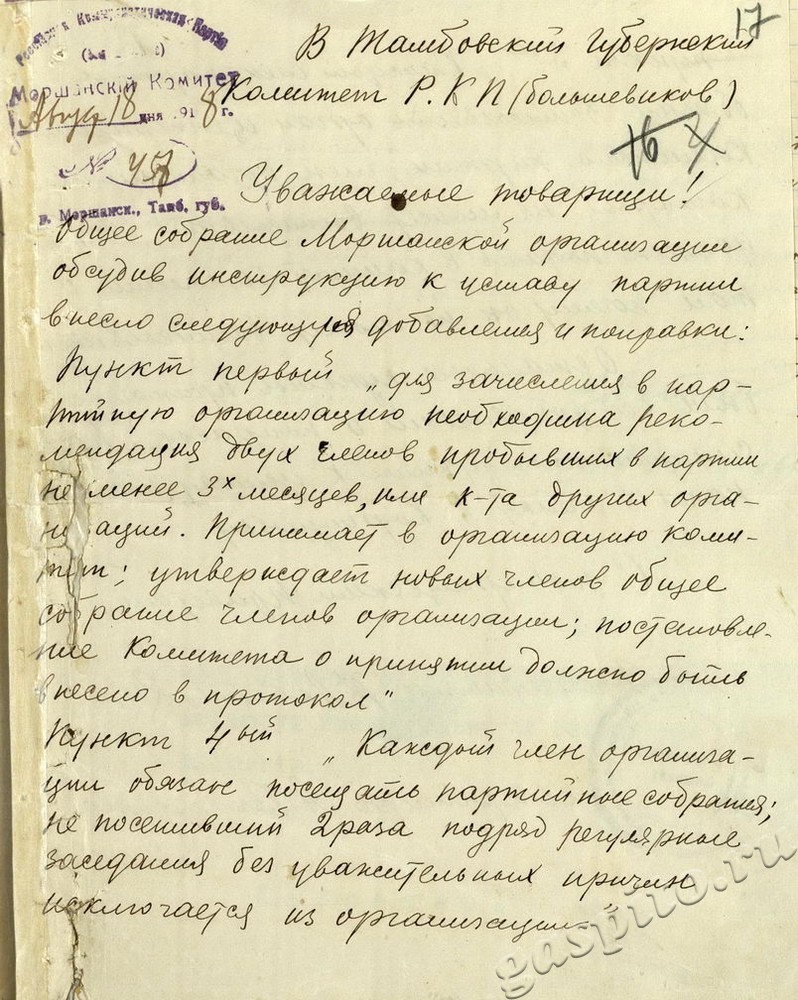 17
Российская Коммунистическая Партия
Моршанскій Комитет
Август 18 дня 1918 г.
№ 457
г. Моршанск, Тамб. губ.
В Тамбовский Губернский
Комитет Р.К П (большевиков)
16 4
Уважаемые товарищи!
Общее собрание Моршанской организации
обсудив инструкцию к уставу партии
внесло следующия добавления и поправки:
Пункт первый „для зачисления в пар-
тийную организацию необходима реко-
мендация двух членов пробывших в партии
не менее 3х месяцев, или к-та других орга-
низаций. Принимает в организацию коми-
тет; утверждает новых членов общее
собрание членов организации; постановле-
ние Комитета о принятии должно быть
внесено в протокол"
Пункт 4ый „Каждый член организа-
ции обязан посещать партийные собрания;
не посетивший 2 раза подряд регулярные
заседания без уважительных причин
исключается из организации"
gaspito.ru